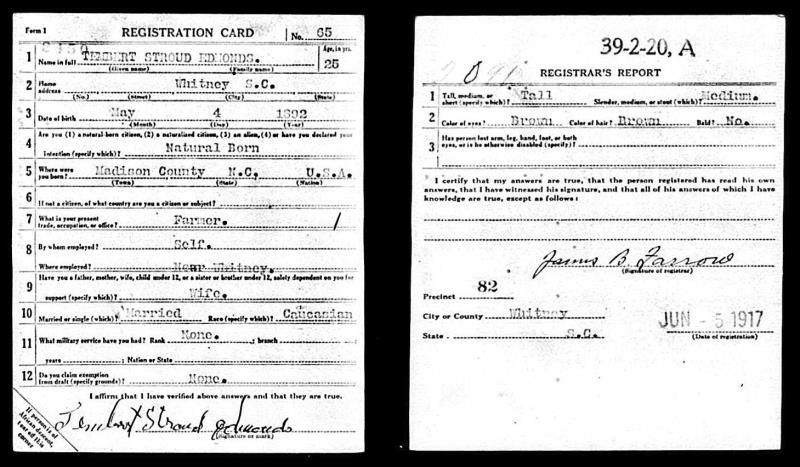 Form 1 REGISTRATION CARD No. 65
1 Name in full TEMBERT STROUD EDMONDS. Age, in yrs. 25
(Given name) (Family name)
2 Home address Whitney S.C.
(No.) (Street) (City) (State)
3 Date of birth May 4 1892
(Month) (Day) (Year)
4 Are you (1) a natural-born citizen, (2) a naturalized citizen, (3) an alien, (4) or have you declared your
intention (specify which)? Natural Born
5 Where were you born? Madison County N.C. U.S.A.
(Town) (State) (Nation)
6 If not a citizen, of what country are you a citizen or subject?
7 What is your present trade, occupation, or office? Farmer. 1
8 By whom employed? Self.
Where employed? Near Whitney.
9 Have you a father, mother, wife, child under 12, or a sister or brother under 12, solely dependent on you for
support (specify which)? Wife.
10 Married or single (which)? Married Race (specify which)? Caucasian
11 What military service have you had? Rank None. ; branch
years ; Nation or State
12 Do you claim exemption from draft (specify grounds)? None.
I affirm that I have verified above answers and that they are true.
Tembert Stroud Edmonds
(Signature or mark)
If person is of African descent, tear off this corner
39-2-20, A
REGISTRAR'S REPORT
1 Tall, medium, or short (specify which)? Tall Slender, medium, or stout (which)? Medium.
2 Color of eyes? Brown Color of hair? Brown Bald? No.
3 Has person lost arm, leg, hand, foot, or both
eyes, or is he otherwise disabled (specify)?
I certify that my answers are true, that the person registered has read his own
answers, that I have witnessed his signature, and that all of his answers of which I have
knowledge are true, except as follows:
James B. Farrow
(Signature of registrar)
Precinct 82
City or County Whitney
State S.C.
JUN - 5 1917
(Date of registration)